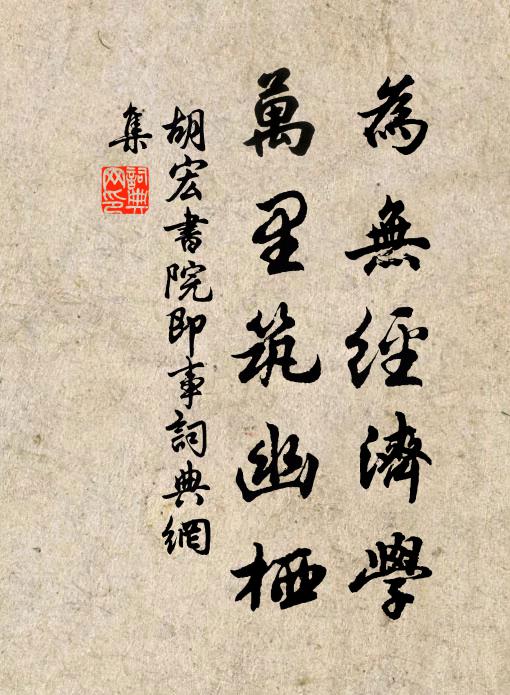 為無經濟學
萬里筑幽栖
胡宏書院即事詞典網
集
詞典網印